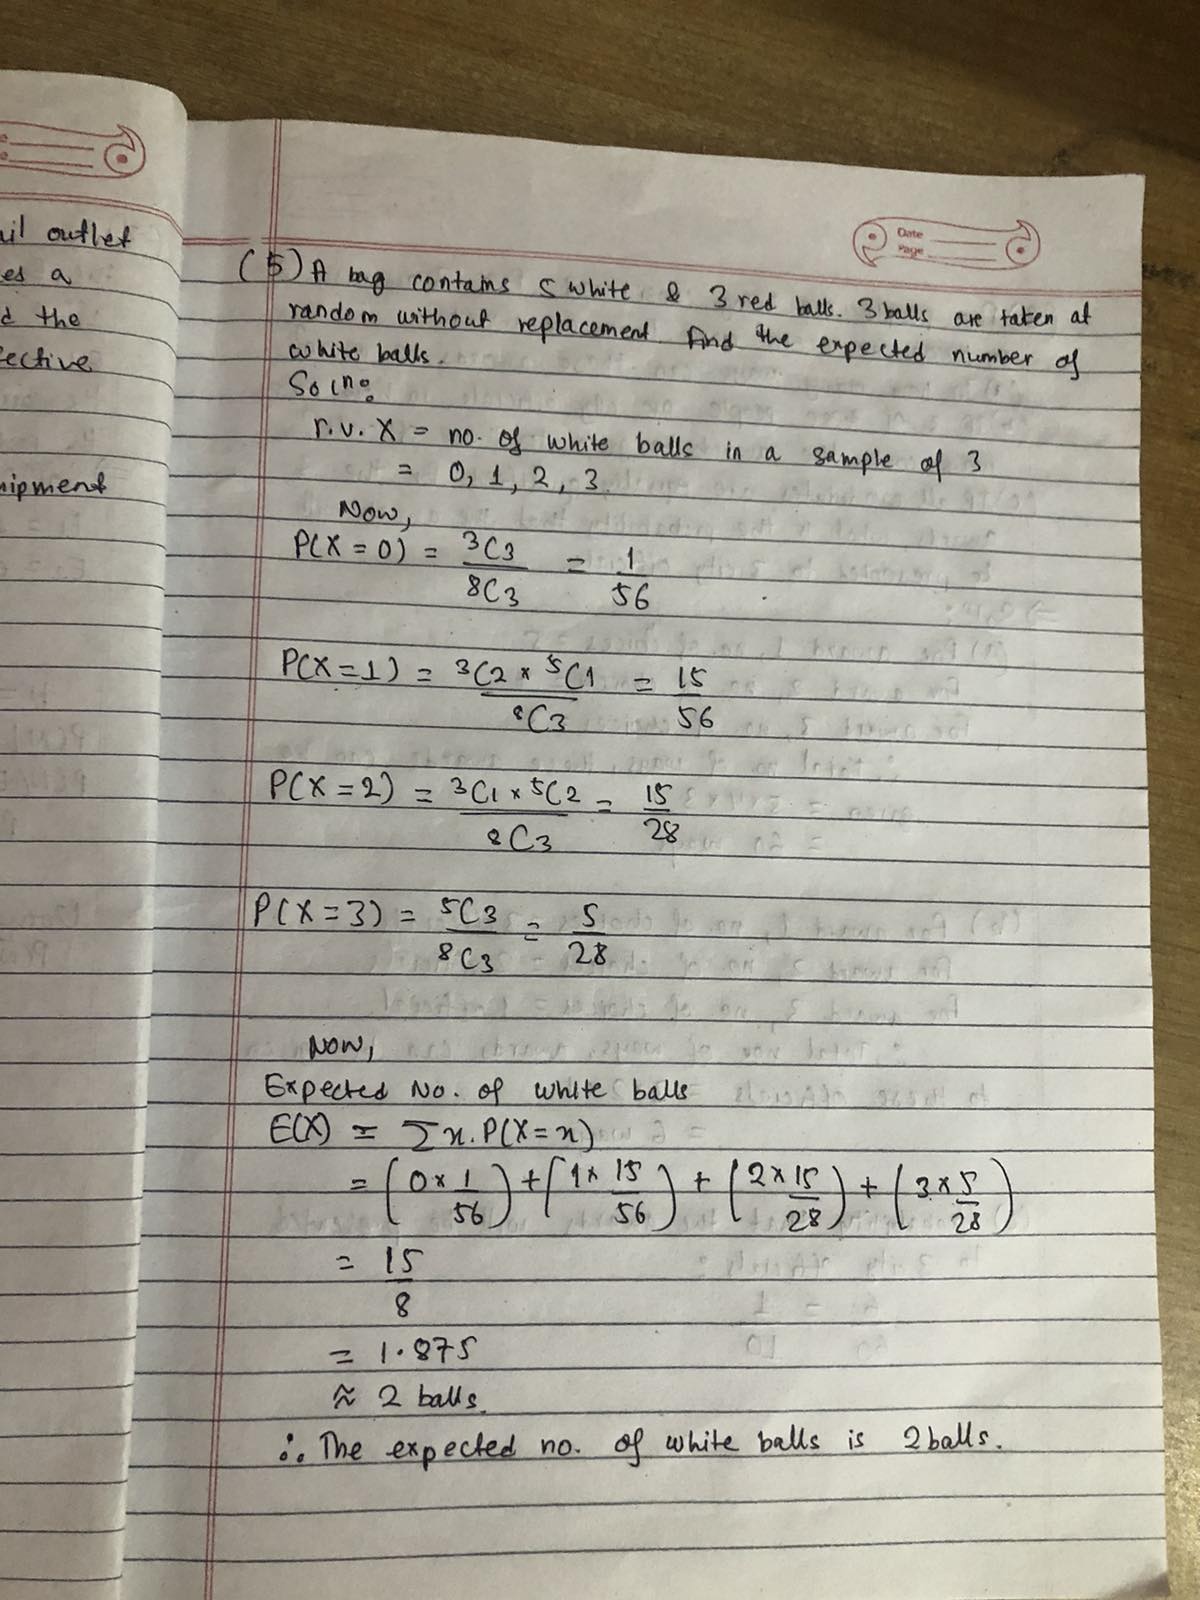 ail outlet
es a
d the
fective
hipment
Date
Page
(5) A bag contains 5 white & 3 red balls. 3 balls are taken at
random without replacement. Find the expected number of
white balls.
Soln:
r.v. X = no. of white balls in a sample of 3
= 0, 1, 2, 3.
Now,
P(X = 0) = 3C3 / 8C3 = 1/56
P(X = 1) = 3C2 × 5C1 / 8C3 = 15/56
P(X = 2) = 3C1 × 5C2 / 8C3 = 15/28
P(X = 3) = 5C3 / 8C3 = 5/28
Now,
Expected No. of white balls
E(X) = Σx.P(X = x)
= (0 × 1/56) + (1 × 15/56) + (2 × 15/28) + (3 × 5/28)
= 15/8
= 1.875
≈ 2 balls.
∴ The expected no. of white balls is 2 balls.